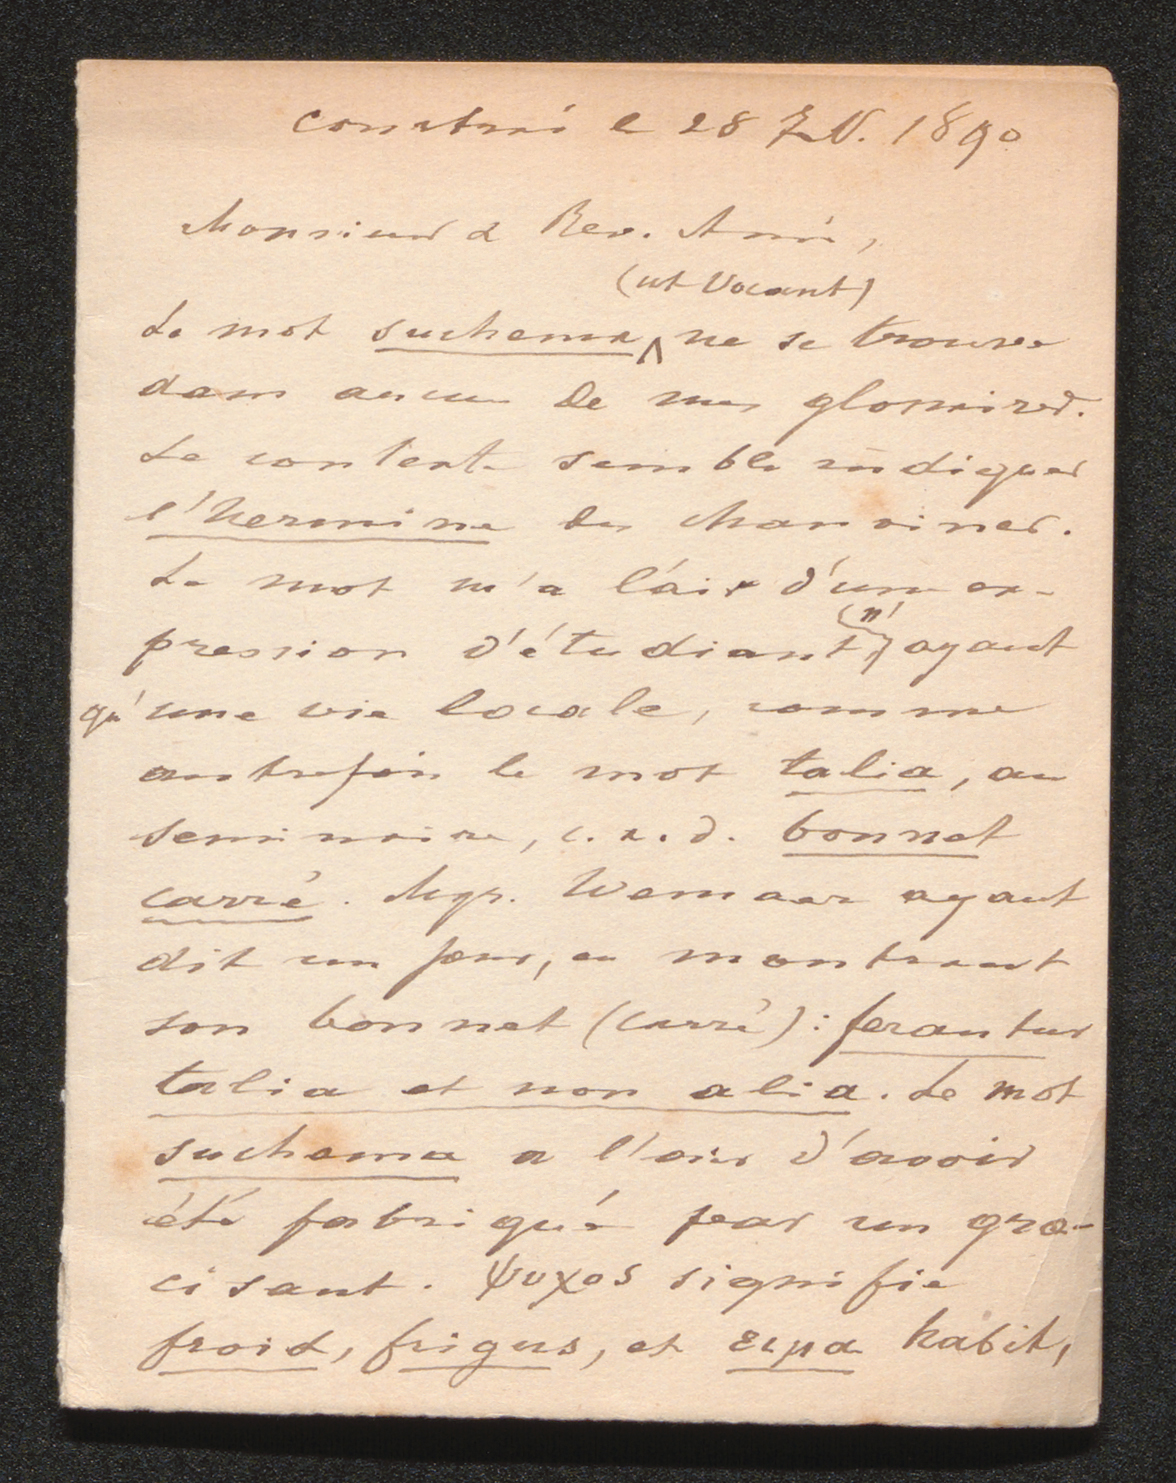 Courtrai le 28 1890
Monsieur & Rev. Ami,
(ut vocant)
Le mot suchema ne se trouve
dans aucun de mes glossaires.
Le contexte semble indiquer
l'hermine des chanoines.
Le mot m'a l'air d'une ex-
pression d'étudiant, (n') ayant
qu'une vie locale, comme
autrefois le mot talia, au
seminaire, c.a.d. bonnet
carré. Mgr. Wemaer ayant
dit un jour, en montrant
son bonnet (carré): ferantur
talia et non alia. Le mot
suchema a l'air d'avoir
été fabriqué par un græ-
cisant. ψυχος signifie
froid, frigus, et ειμα habit,